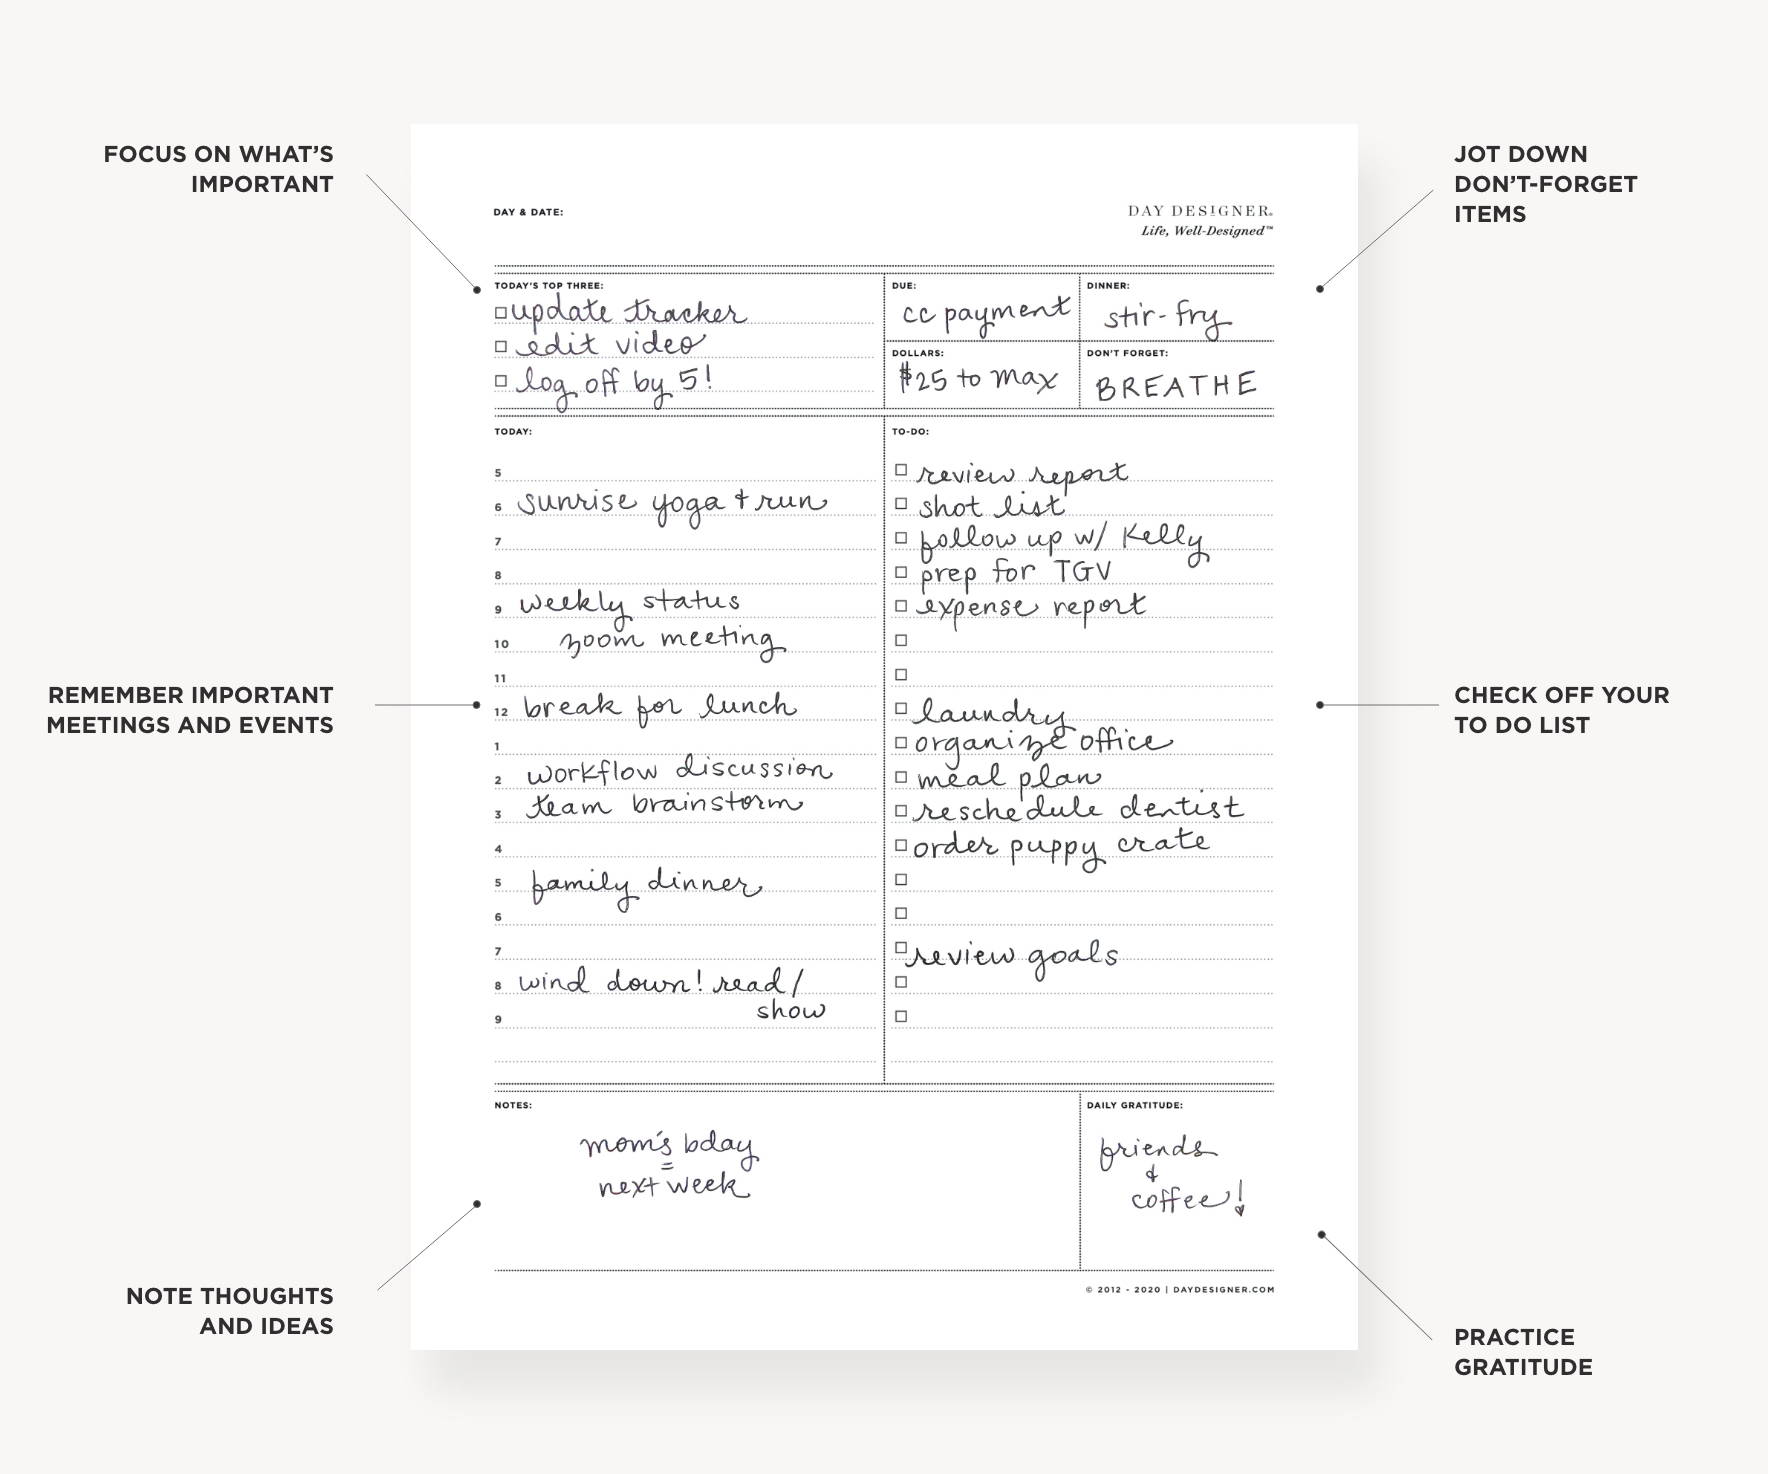 FOCUS ON WHAT'S
IMPORTANT
JOT DOWN
DON'T-FORGET
ITEMS
DAY & DATE:
DAY DESIGNER®
Life, Well-Designed™
TODAY'S TOP THREE:
update tracker
edit video
log off by 5!
DUE:
cc payment
DINNER:
stir-fry
DOLLARS:
$25 to max
DON'T FORGET:
BREATHE
REMEMBER IMPORTANT
MEETINGS AND EVENTS
TODAY:
5
6 sunrise yoga + run
7
8
9 weekly status
10 zoom meeting
11
12 break for lunch
1
2 workflow discussion
3 team brainstorm
4
5 family dinner
6
7
8 wind down! read/
show
9
TO-DO:
review report
shot list
follow up w/ Kelly
prep for TGV
expense report
laundry
organize office
meal plan
reschedule dentist
order puppy crate
review goals
CHECK OFF YOUR
TO DO LIST
NOTES:
mom's bday
=
next week
DAILY GRATITUDE:
friends
&
coffee!
© 2012 - 2020 | DAYDESIGNER.COM
NOTE THOUGHTS
AND IDEAS
PRACTICE
GRATITUDE